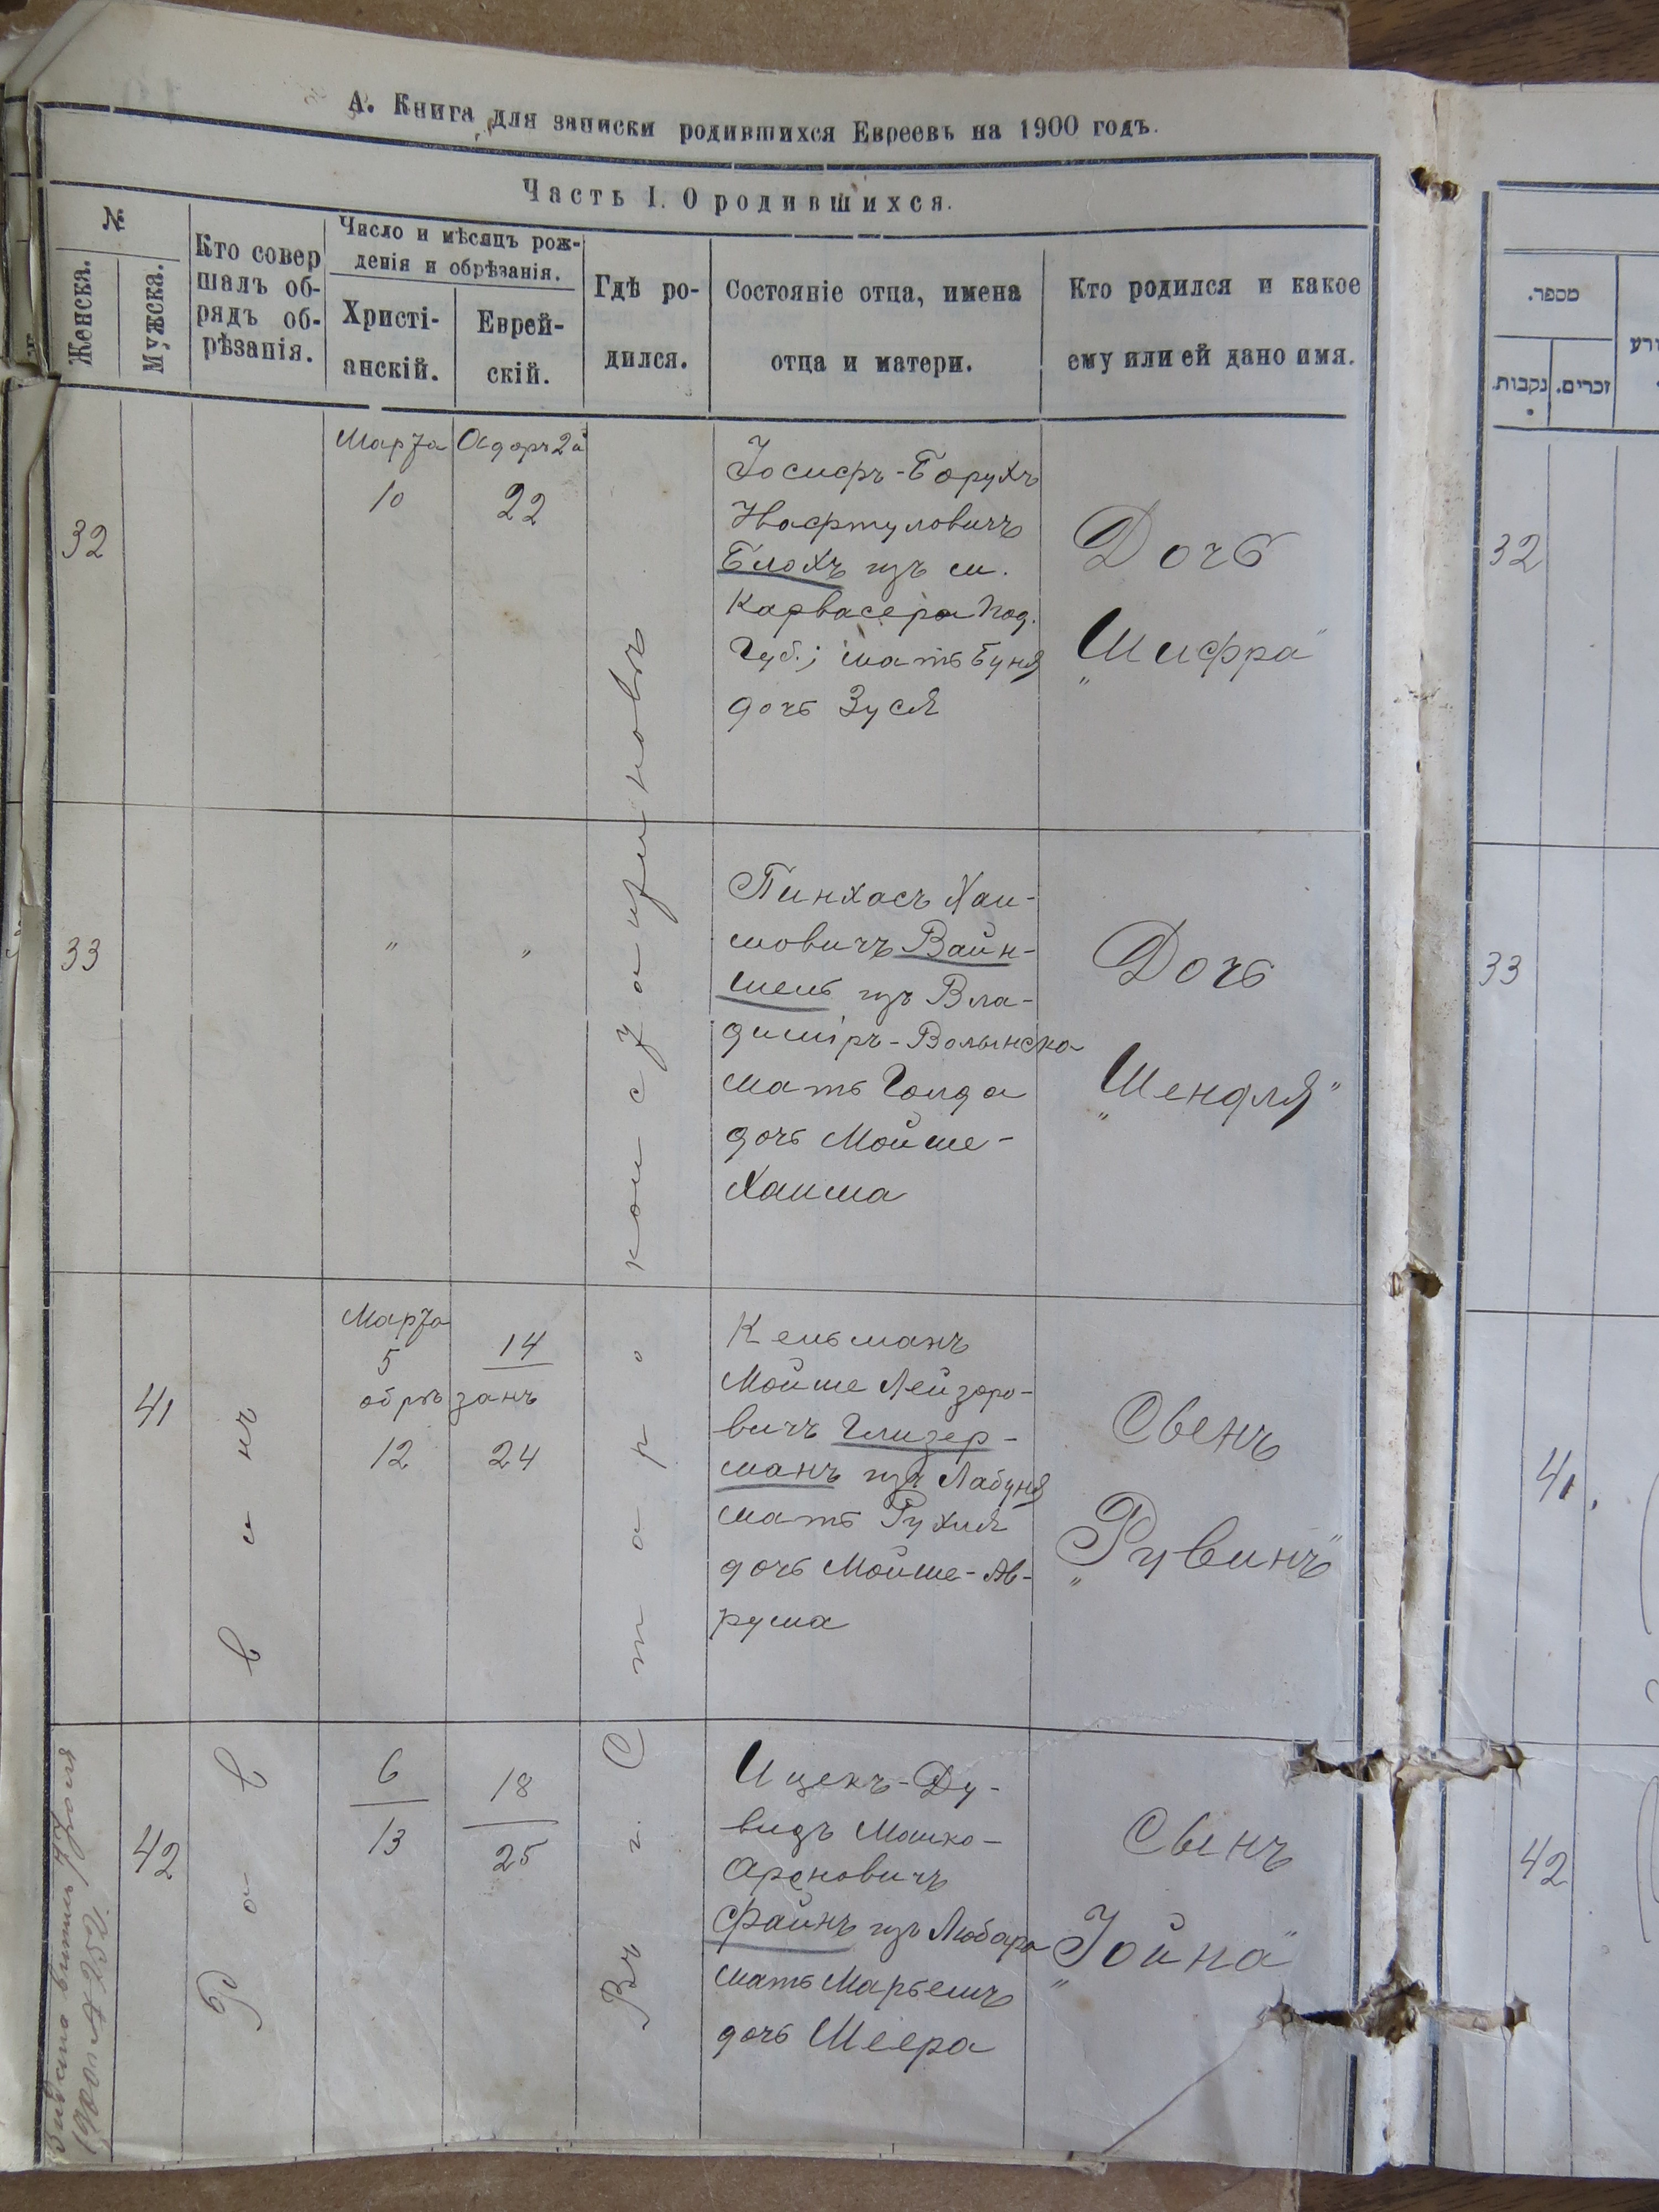 А. Книга для записки родившихся Евреевъ на 1900 годъ.
Часть I. О родившихся.
№
Женска.
Мужска.
Кто совер
шалъ об-
рядъ об-
рѣзанія.
Число и мѣсяцъ рож-
денія и обрѣзанія.
Христі-
анскій.
Еврей-
скій.
Гдѣ ро-
дился.
Состояніе отца, имена
отца и матери.
Кто родился и какое
ему или ей дано имя.
32
Марта
10
Одоръ 2й
22
Іосифъ-Борухъ
Нафтуловичъ
Блохъ изъ м.
Карвасера Под.
Губ.; мать Буня
дочь Зуся
Дочь
„Шифра"
33
"
"
Пинхасъ Хаи-
мовичъ Вайн-
шель изъ Вла-
диміръ-Волынска
мать Голда
дочь Мойше-
Хаима
Дочь
„Шендля"
41
Марта
5
14
обрѣзанъ
12
24
Кельманъ
Мойше Лейзоро-
вичъ Глизер-
манъ изъ Лабуня
мать Рухля
дочь Мойше-Ав-
рума
Сынъ
„Рувинъ"
42
6
13
18
25
Ицекъ-Ду-
видъ Мошко-
Ароновичъ
Файнъ изъ Любара
мать Марьемъ
дочь Меера
Сынъ
„Іойна"
Раввинъ
Въ г. Староконстантиновѣ
מספר.
נקבות.
זכרים.
32
33
41.
42